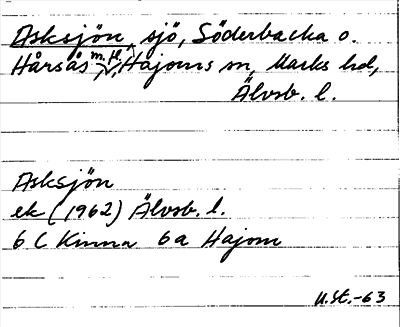 Asksjön, sjö, Söderbacka o.
Hårsås m. fl., Hajoms sn, Marks hd,
Älvsb. l.
Asksjön
ek (1962) Älvsb. l.
6 C Kinna 6a Hajom
U.St.-63